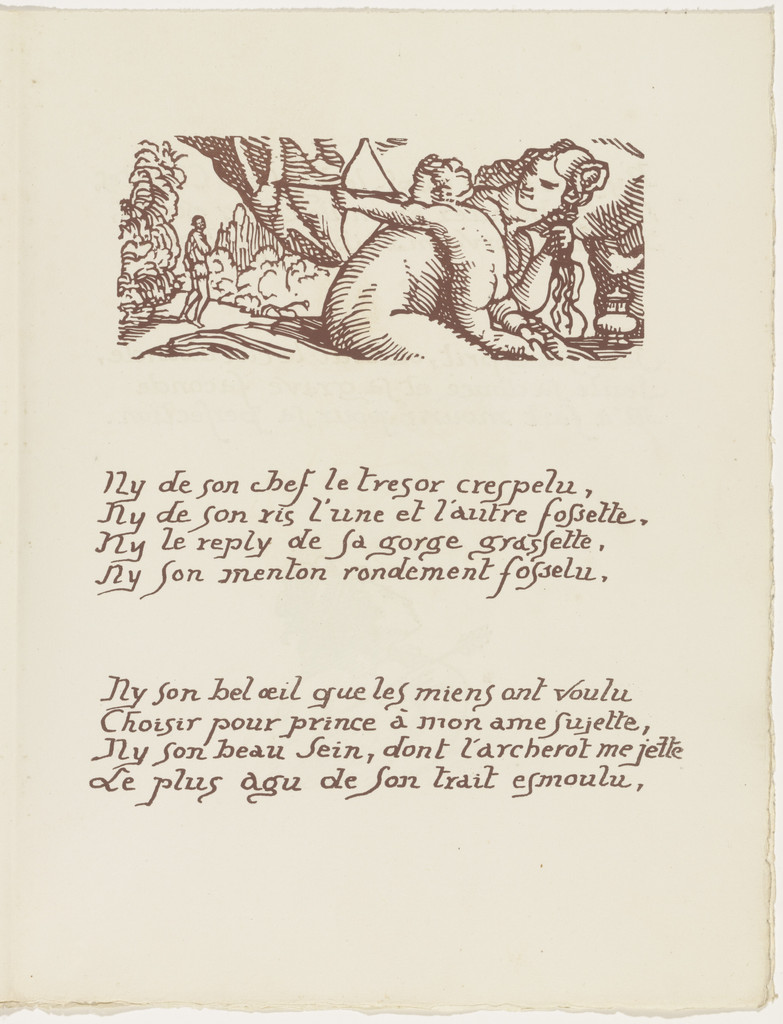 Ny de son chef le tresor crespelu,
Ny de son ris l'une et l'autre fossette,
Ny le reply de sa gorge grassette,
Ny son menton rondement fosselu,
Ny son bel œil que les miens ont voulu
Choisir pour prince à mon ame sujette,
Ny son beau sein, dont l'archerot me jette
Le plus agu de son trait esmoulu,